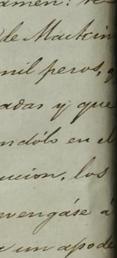 de Maitin
mil pesos,
adas y que
ndólo en el
ucion, los
vengáse á
a un apode